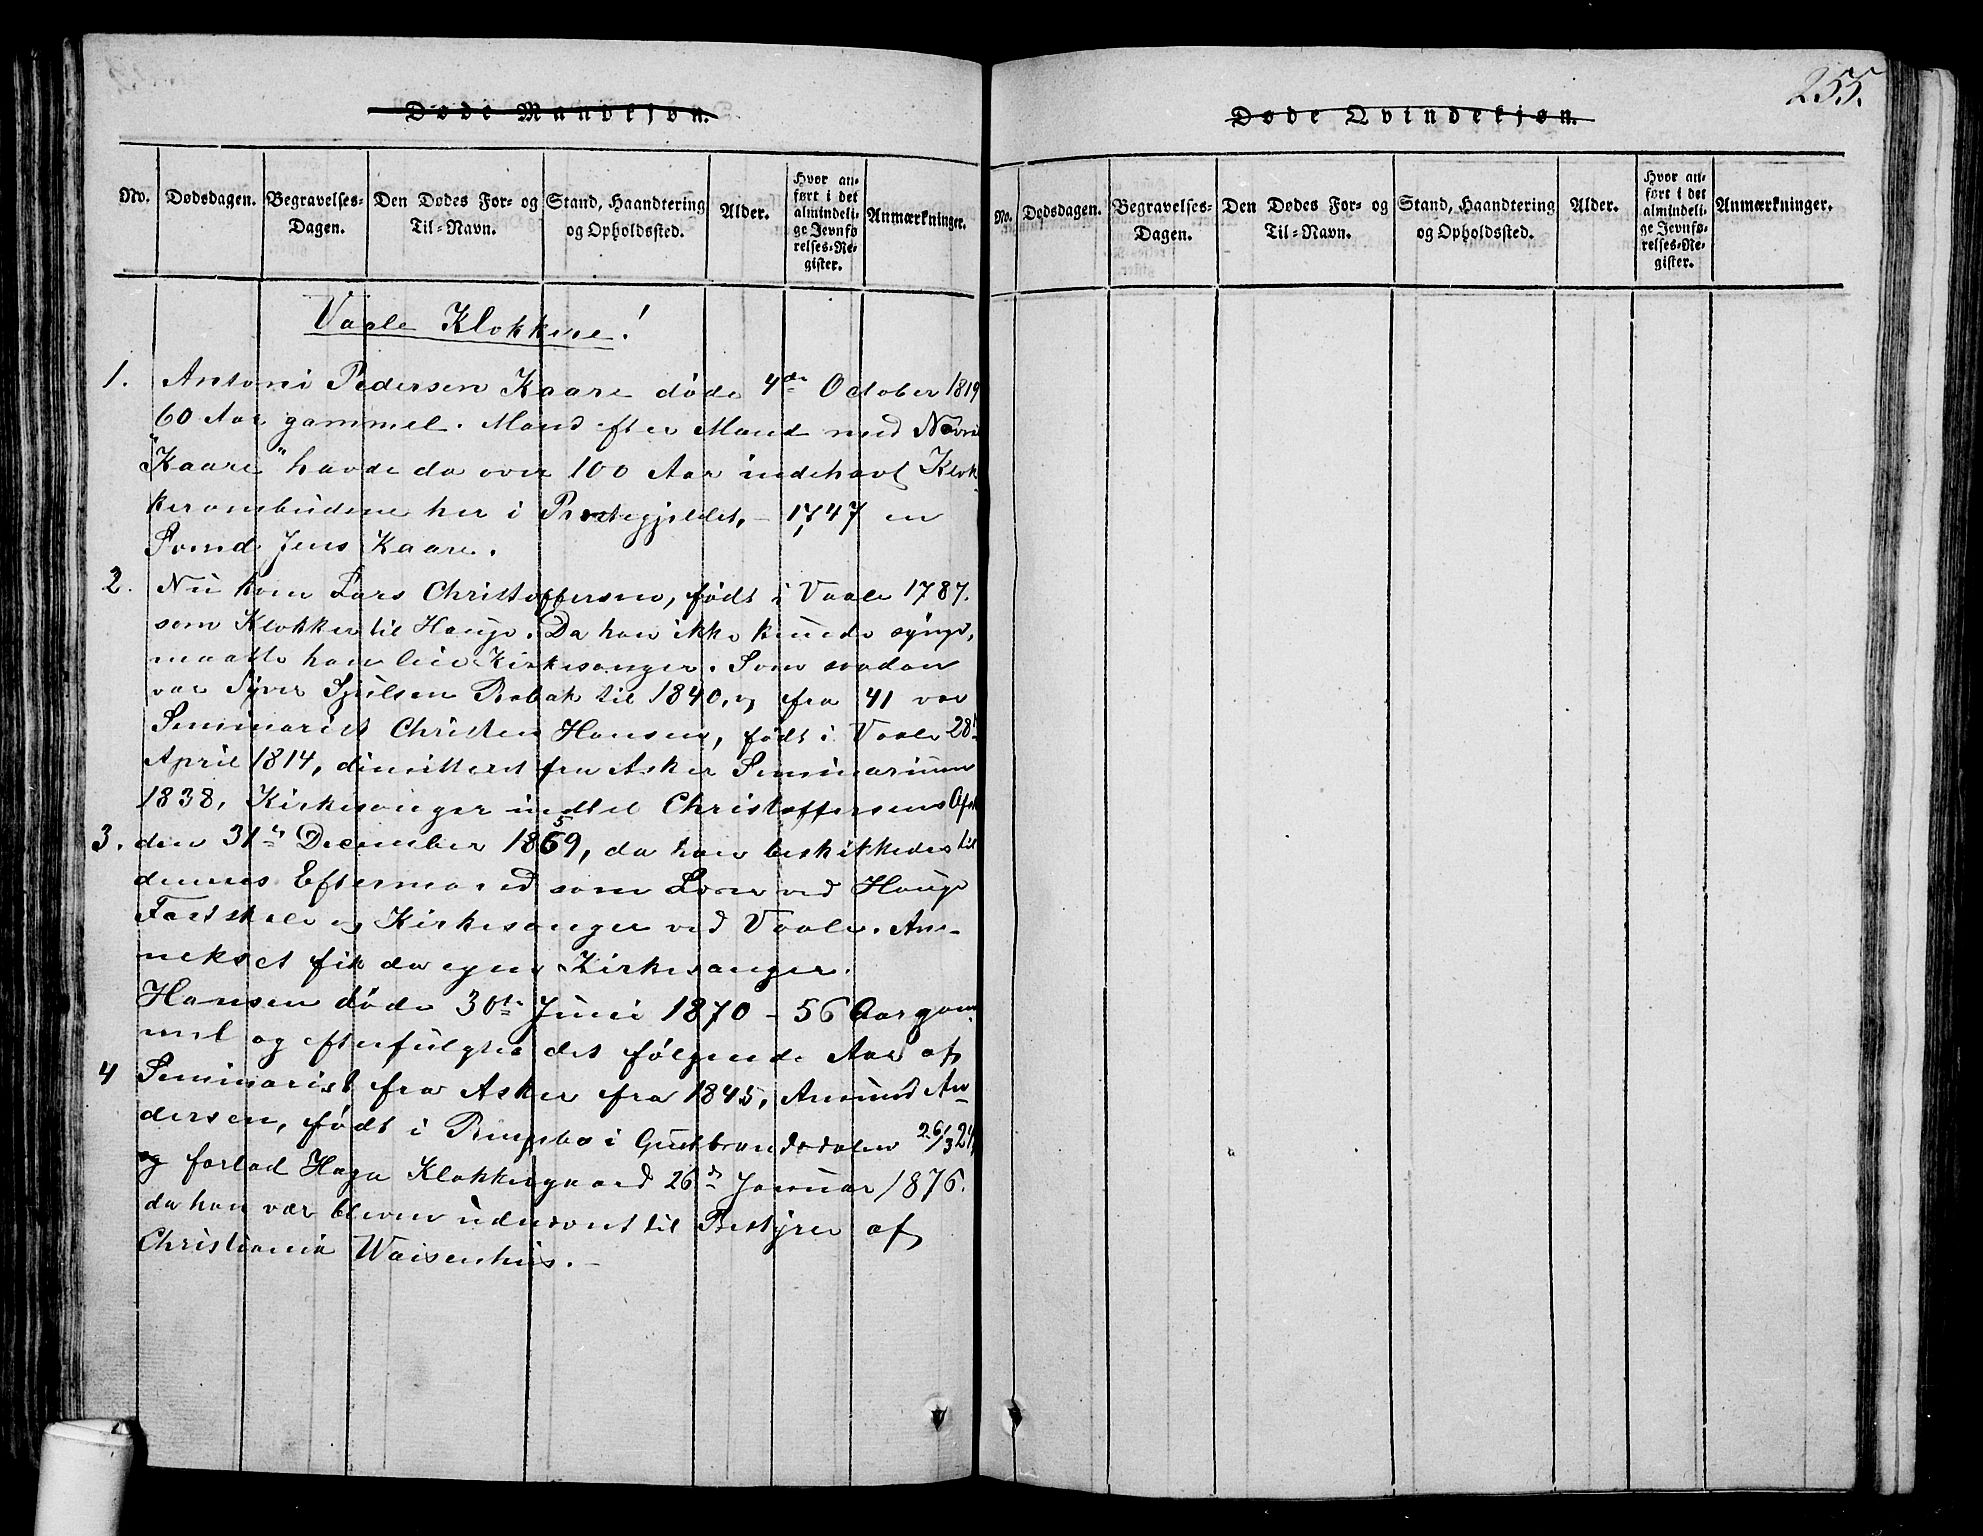 255.
Døde Mandkjøn.
No.
Dødsdagen.
Begravelses-
Dagen.
Den Dødes For- og
Til-Navn.
Stand, Haandtering
og Opholdssted.
Alder.
Hvor an-
ført i det
almindeli-
ge Jevnfø-
relses-Re-
gister.
Anmærkninger.
Vaale Klokkere!
1. Antoni Pedersen Kaare døde 4de October 1819
60 Aar gammel. Mand efter Mand med Navn
"Kaare" havde da over 100 Aar indehavt Klok
kerombudene her i Præstegjeldet, - 1747 en
Svend Jens Kaare.
2. Nu kom Lars Christoffersen, født i Vaale 1787.
som Klokker til Hauge. Da han ikke kunde synge,
maatte han leie Kirkesanger. Som saadan
var Syver Sjulsen Rabak til 1840, og fra 41 var
Seminarist Christen Hansen, født i Vaale 28
April 1814, dimitteret fra Asker Seminarium
1838, Kirkesanger indtil Christoffersens Afsk
3. den 31te December 1859, da han beskikkedes til
dennes Eftermand som Lærer ved Hauge
Fastskole og Kirkesanger ved Vaale. An-
nekset fik da egen Kirkesanger.
Hansen døde 30te Juni 1870 - 56 Aar gam
mel og efterfulgtes det følgende Aar af
4 Seminarist fra Asker fra 1845, Amund An-
dersen, født i Ringebo i Gudbrandsdalen 26/3 24,
og forlod Haga Klokkergaard 26de Januar 1876.
da han var bleven udnævnt til Bestyrer af
Christiania Waisenhus. -
Døde Qvindekjøn.
No.
Dødsdagen.
Begravelses-
Dagen.
Den Dødes For- og
Til-Navn.
Stand, Haandtering
og Opholdssted.
Alder.
Hvor an-
ført i det
almindeli-
ge Jevnfø-
relses-Re-
gister.
Anmærkninger.